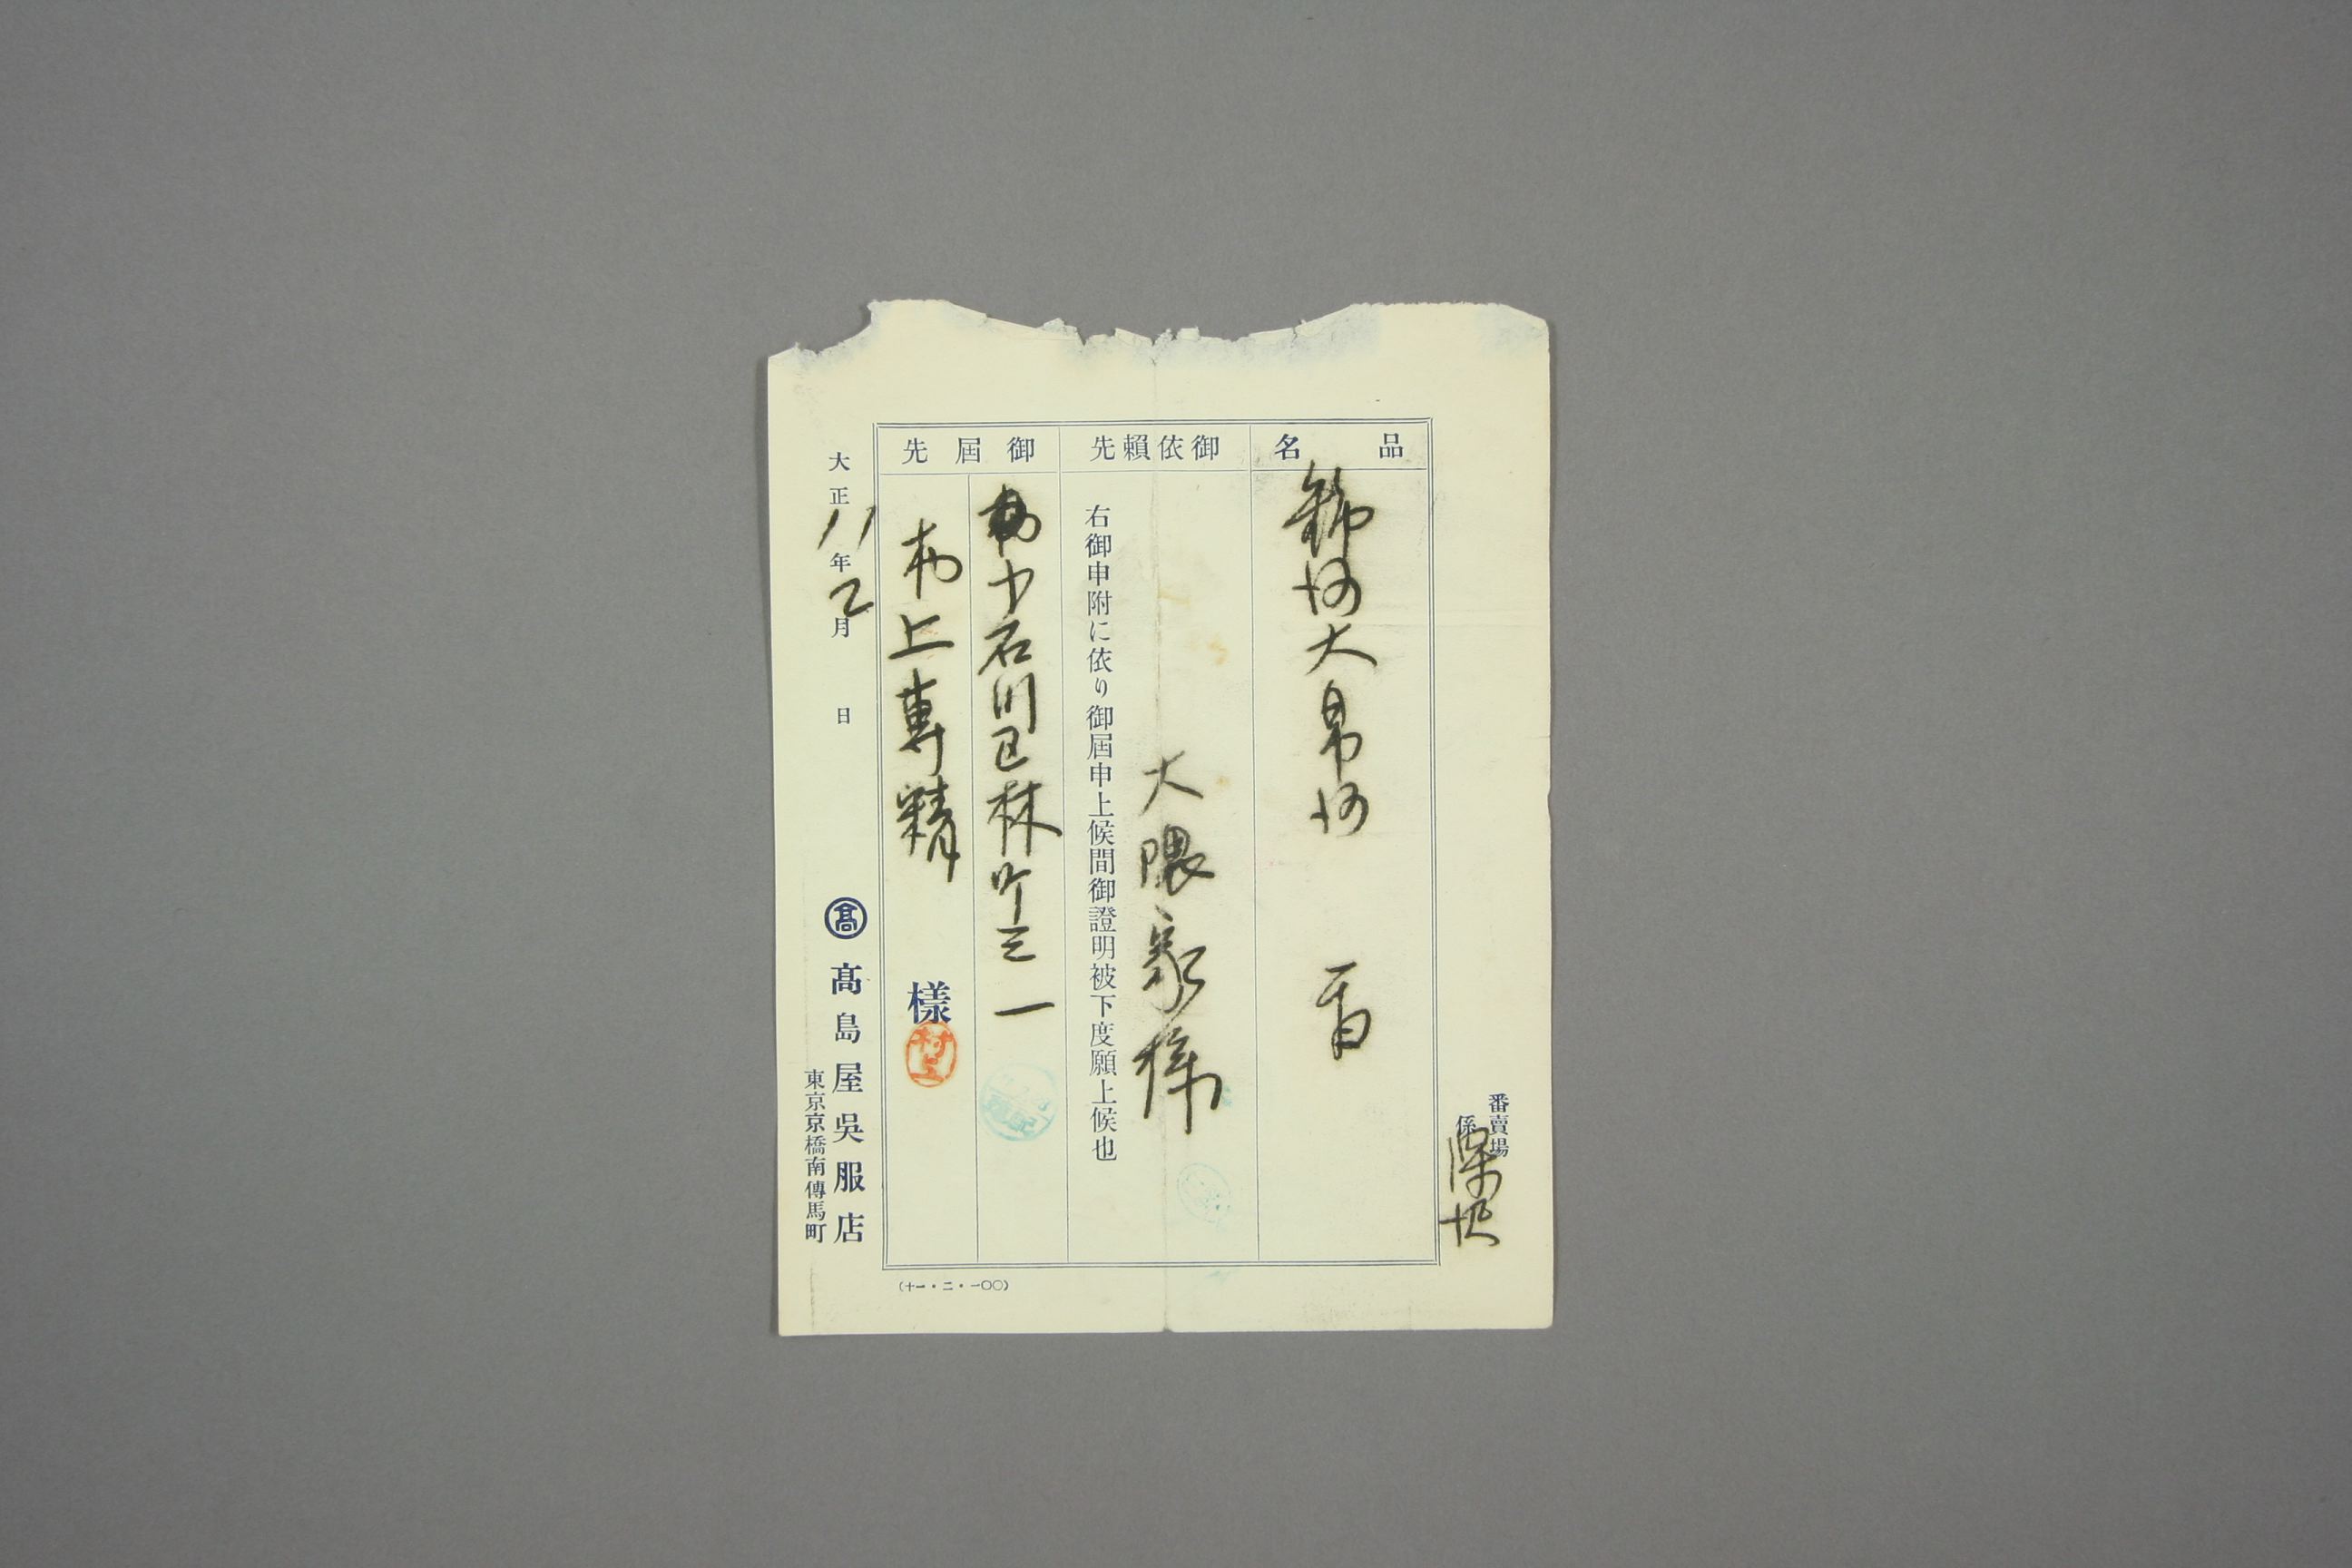 番賣場
係
品名
大帛
御依賴先
大隈家様
右御申附に依り御屆申上候間御證明被下度願上候也
御屆先
小石川区林町三一
村上專精
樣
村上
大正11年2月 日
髙
髙島屋吳服店
東京京橋南傳馬町
(十一・二・一〇〇)